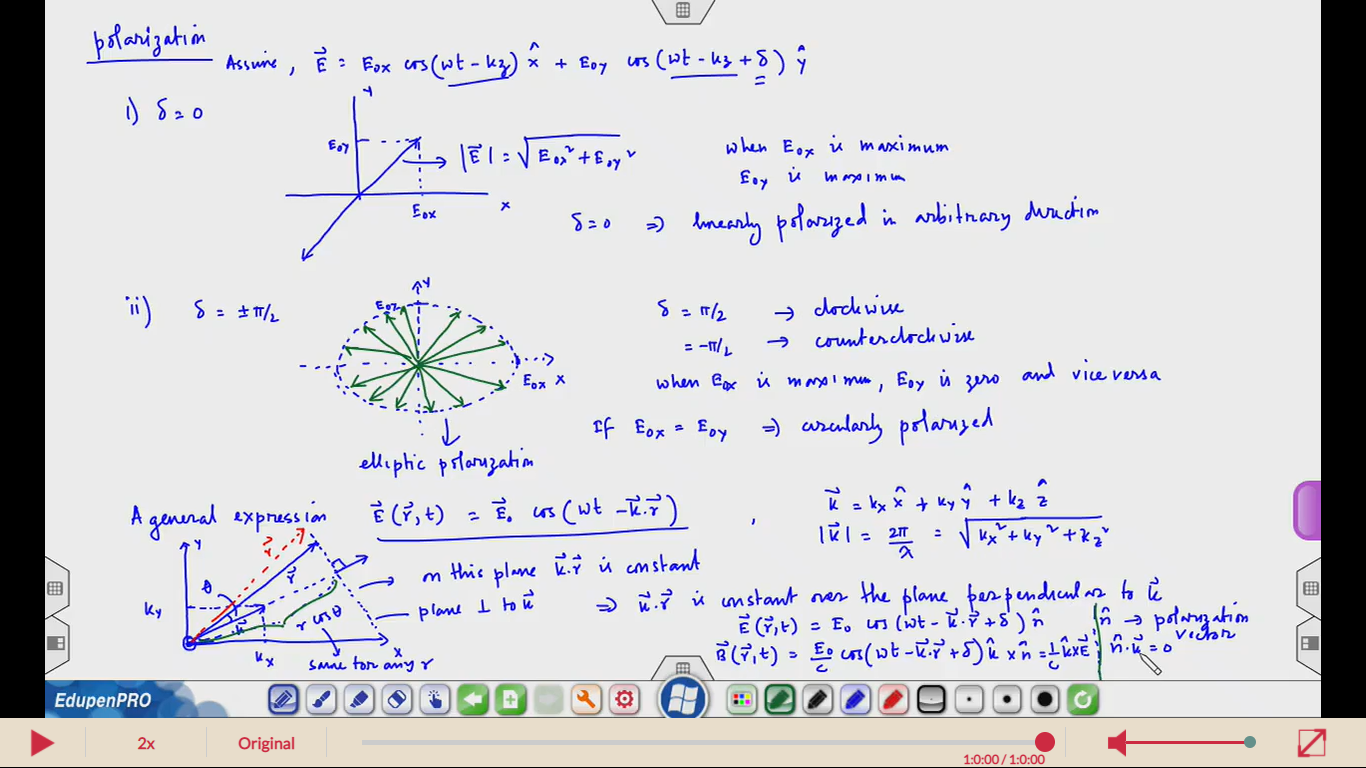 polarization
Assume, E⃗ = E₀ₓ cos(wt - kz) x̂ + E₀ᵧ cos(wt - kz + δ) ŷ
i) δ = 0
Y
E₀ᵧ
|E⃗| = √(E₀ₓ² + E₀ᵧ²)
E₀ₓ
X
when E₀ₓ is maximum
E₀ᵧ is maximum
δ = 0 ⇒ linearly polarized in arbitrary direction
ii) δ = ±π/2
Y
E₀ₓ X
elliptic polarization
δ = π/2 → clockwise
= -π/2 → counterclockwise
when E₀ₓ is maximum, E₀ᵧ is zero and vice versa
If E₀ₓ = E₀ᵧ ⇒ circularly polarized
A general expression E⃗(r⃗,t) = E⃗₀ cos(wt - k⃗.r⃗) ,
k⃗ = kₓ x̂ + kᵧ ŷ + k_z ẑ
|k⃗| = 2π/λ = √(kₓ² + kᵧ² + k_z²)
Y
r⃗
r⃗
θ
kᵧ
k⃗
r cosθ
kₓ
X
same for any r
on this plane k⃗.r⃗ is constant
plane ⊥ to k⃗ ⇒ k⃗.r⃗ is constant over the plane perpendicular to k⃗
E⃗(r⃗,t) = E₀ cos(wt - k⃗.r⃗ + δ) n̂
B⃗(r⃗,t) = E₀/c cos(wt - k⃗.r⃗ + δ) k̂ × n̂ = 1/c k̂ × E⃗
n̂ → polarization vector
n̂.k⃗ = 0
EdupenPRO
2x
Original
1:0:00 / 1:0:00